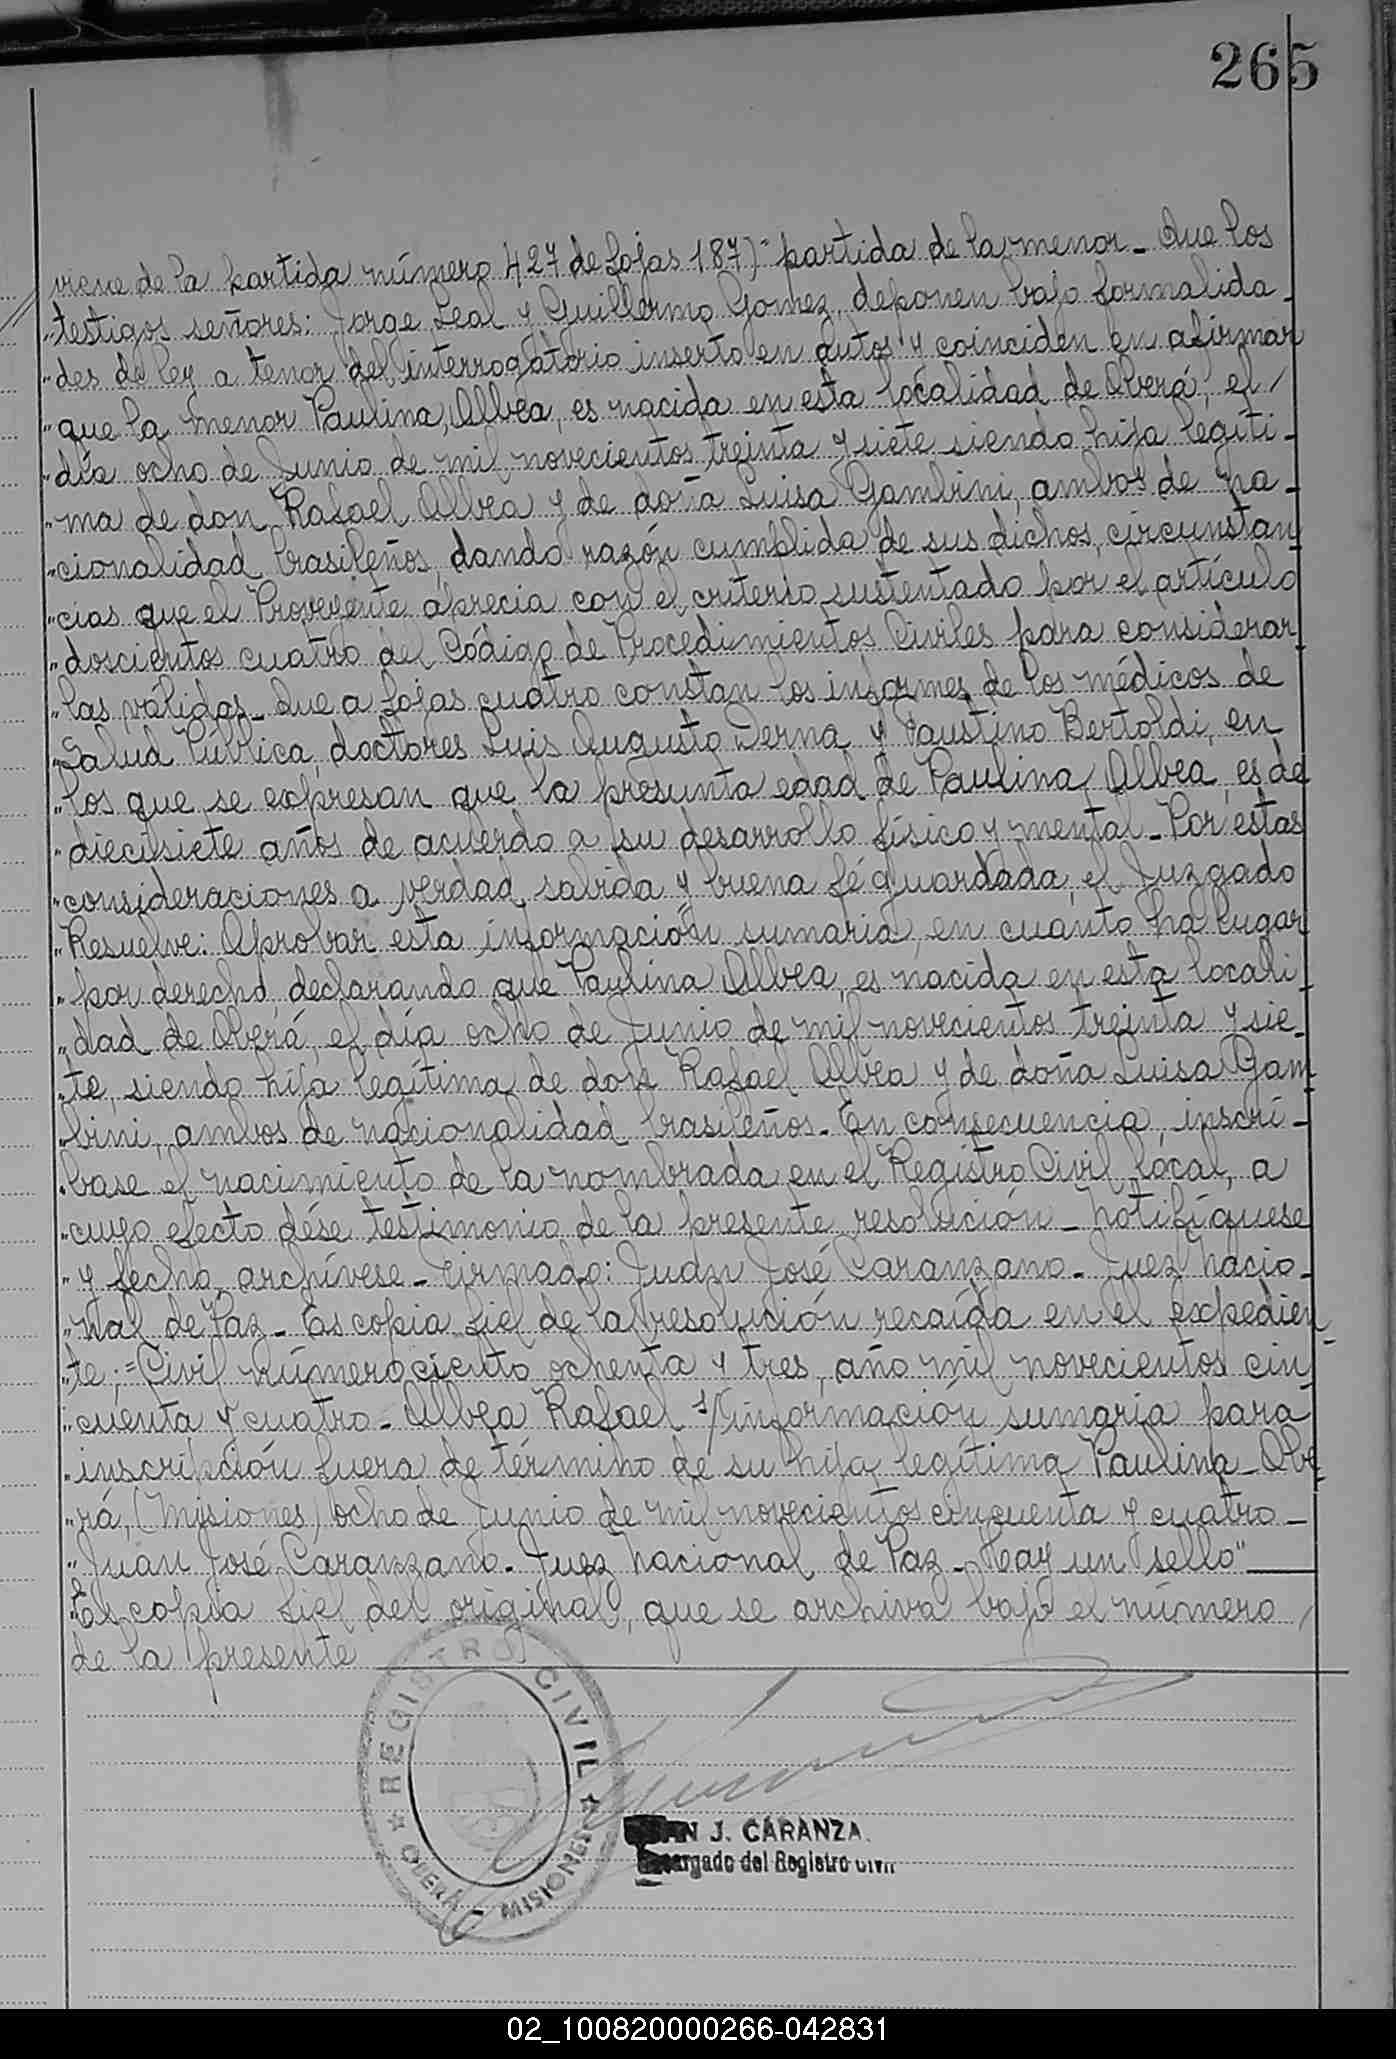 265
viene de la partida número 427 de fojas 187)" partida de la menor_ Que los
"testigos señores: Jorge Leal y Guillermo Gomez, deponen bajo formalida_
"des de ley a tenor del interrogatorio inserto en autos y coinciden en afirmar
"que la menor Paulina, Albea, es nacida en esta localidad de Oberá, el/
"día ocho de Junio de mil novecientos treinta y siete siendo hija legíti-
"ma de don Rafael Albea y de doña Luisa Gambini, ambos de na_
"cionalidad brasileños, dando razón cumplida de sus dichos, circunstan
"cias que el Proveyente aprecia con el criterio sustentado por el artículo
"doscientos cuatro del Código de Procedimientos Civiles para considerar
"las válidas_ Que a fojas cuatro constan los informes de los médicos de
"Salud Pública, doctores Luis Augusto Derna y Faustino Bertoldi, en
"los que se expresan que la presunta edad de Paulina Albea, es de
"diecisiete años de acuerdo a su desarrollo físico y mental_ Por estas
"consideraciones a verdad sabida y buena fé guardada, el Juzgado
"Resuelve: Aprobar esta información sumaria, en cuanto ha lugar
"por derecho declarando que Paulina Albea, es nacida en esta locali
"dad de Oberá, el día ocho de Junio de mil novecientos treinta y sie_
"te, siendo hija legítima de don Rafael Albea y de doña Luisa Gam
"bini, ambos de nacionalidad brasileños_ En consecuencia, inscrí-
"base el nacimiento de la nombrada en el Registro Civil local, a
"cuyo efecto dése testimonio de la presente resolución_ Notifíquese
"y fecho, archívese_ Firmado: Juan José Caranzano_ Juez Nacio_
"nal de Paz_ Es copia fiel de la resolución recaída en el expedien
"te;=Civil número ciento ochenta y tres, año mil novecientos cin
"cuenta y cuatro_ Albea Rafael s/información sumaria para
"inscripción fuera de término de su hija legítima Paulina_ Obe
"rá, (Misiones) ocho de Junio de mil novecientos cincuenta y cuatro_
"Juan José Caranzano_ Juez Nacional de Paz_ Hay un sello"
Es copia fiel del original, que se archiva bajo el número /
de la presente
REGISTRO CIVIL
OBERÁ MISIONES
J. CARANZA
del Registro Civil
02_100820000266-042831